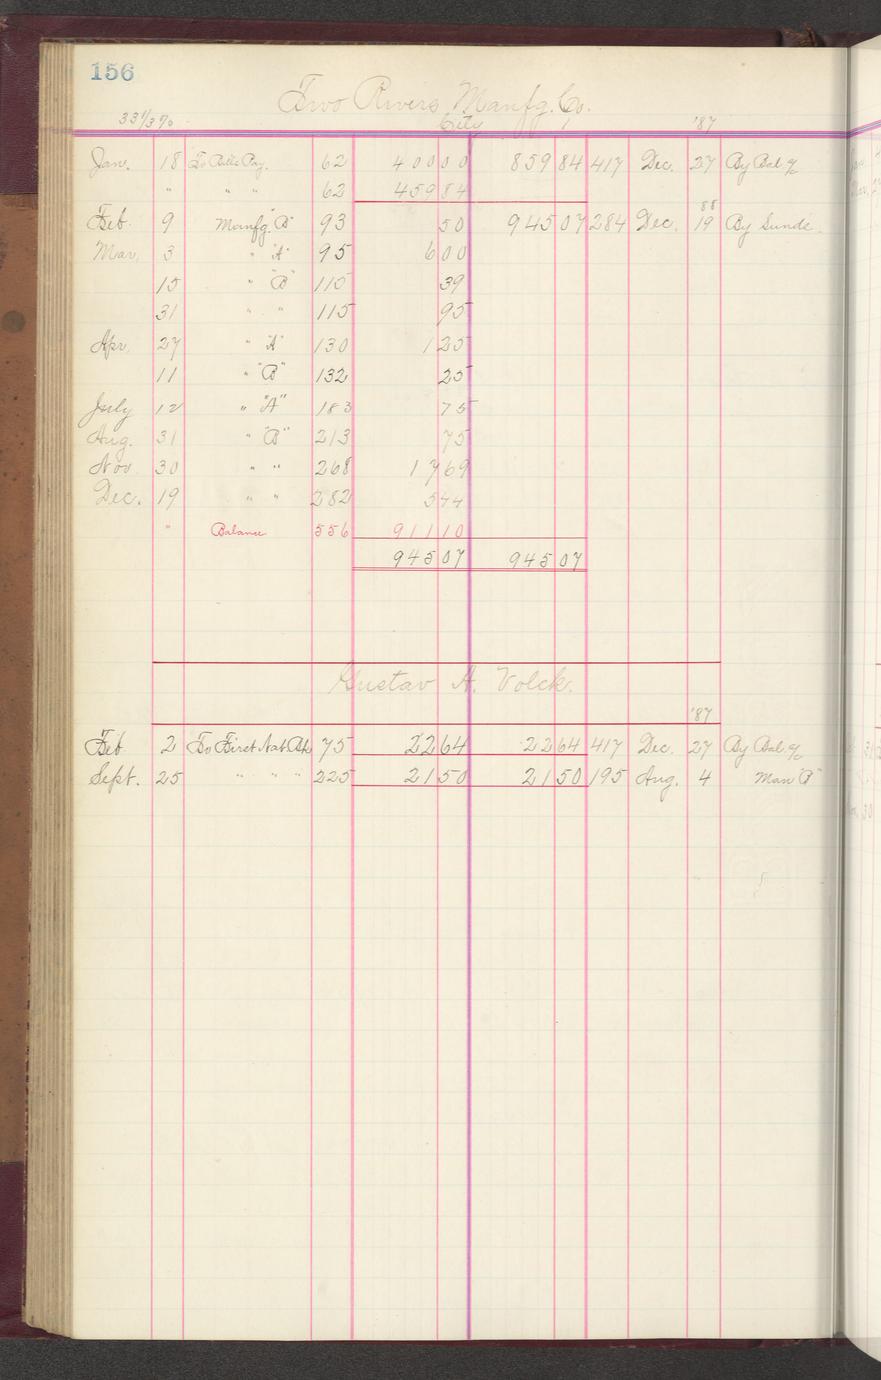 156
Two Rivers Manfg. Co.
33 1/3 % City '87
Jan. 18 To Bills Pay. 62 400 00 859 84 417 Dec. 27 By Bal. of
" " " 62 459 84
88
Feb. 9 Manfg. "B" 93 50 945 07 284 Dec. 19 By Sunds.
Mar. 3 " "A" 95 6 00
15 " "B" 115 39
31 " " 115 95
Apr. 27 " "A" 130 1 25
11 " "B" 132 25
July 12 " "A" 183 75
Aug. 31 " "B" 213 75
Nov. 30 " " 268 17 69
Dec. 19 " " 282 5 44
" Balance 556 911 10
945 07 945 07
Gustav A. Volck.
'87
Feb. 2 To First Nat. Bk 75 22 64 22 64 417 Dec. 27 By Bal. of
Sept. 25 " " " 225 21 50 21 50 195 Aug. 4 Man "B"